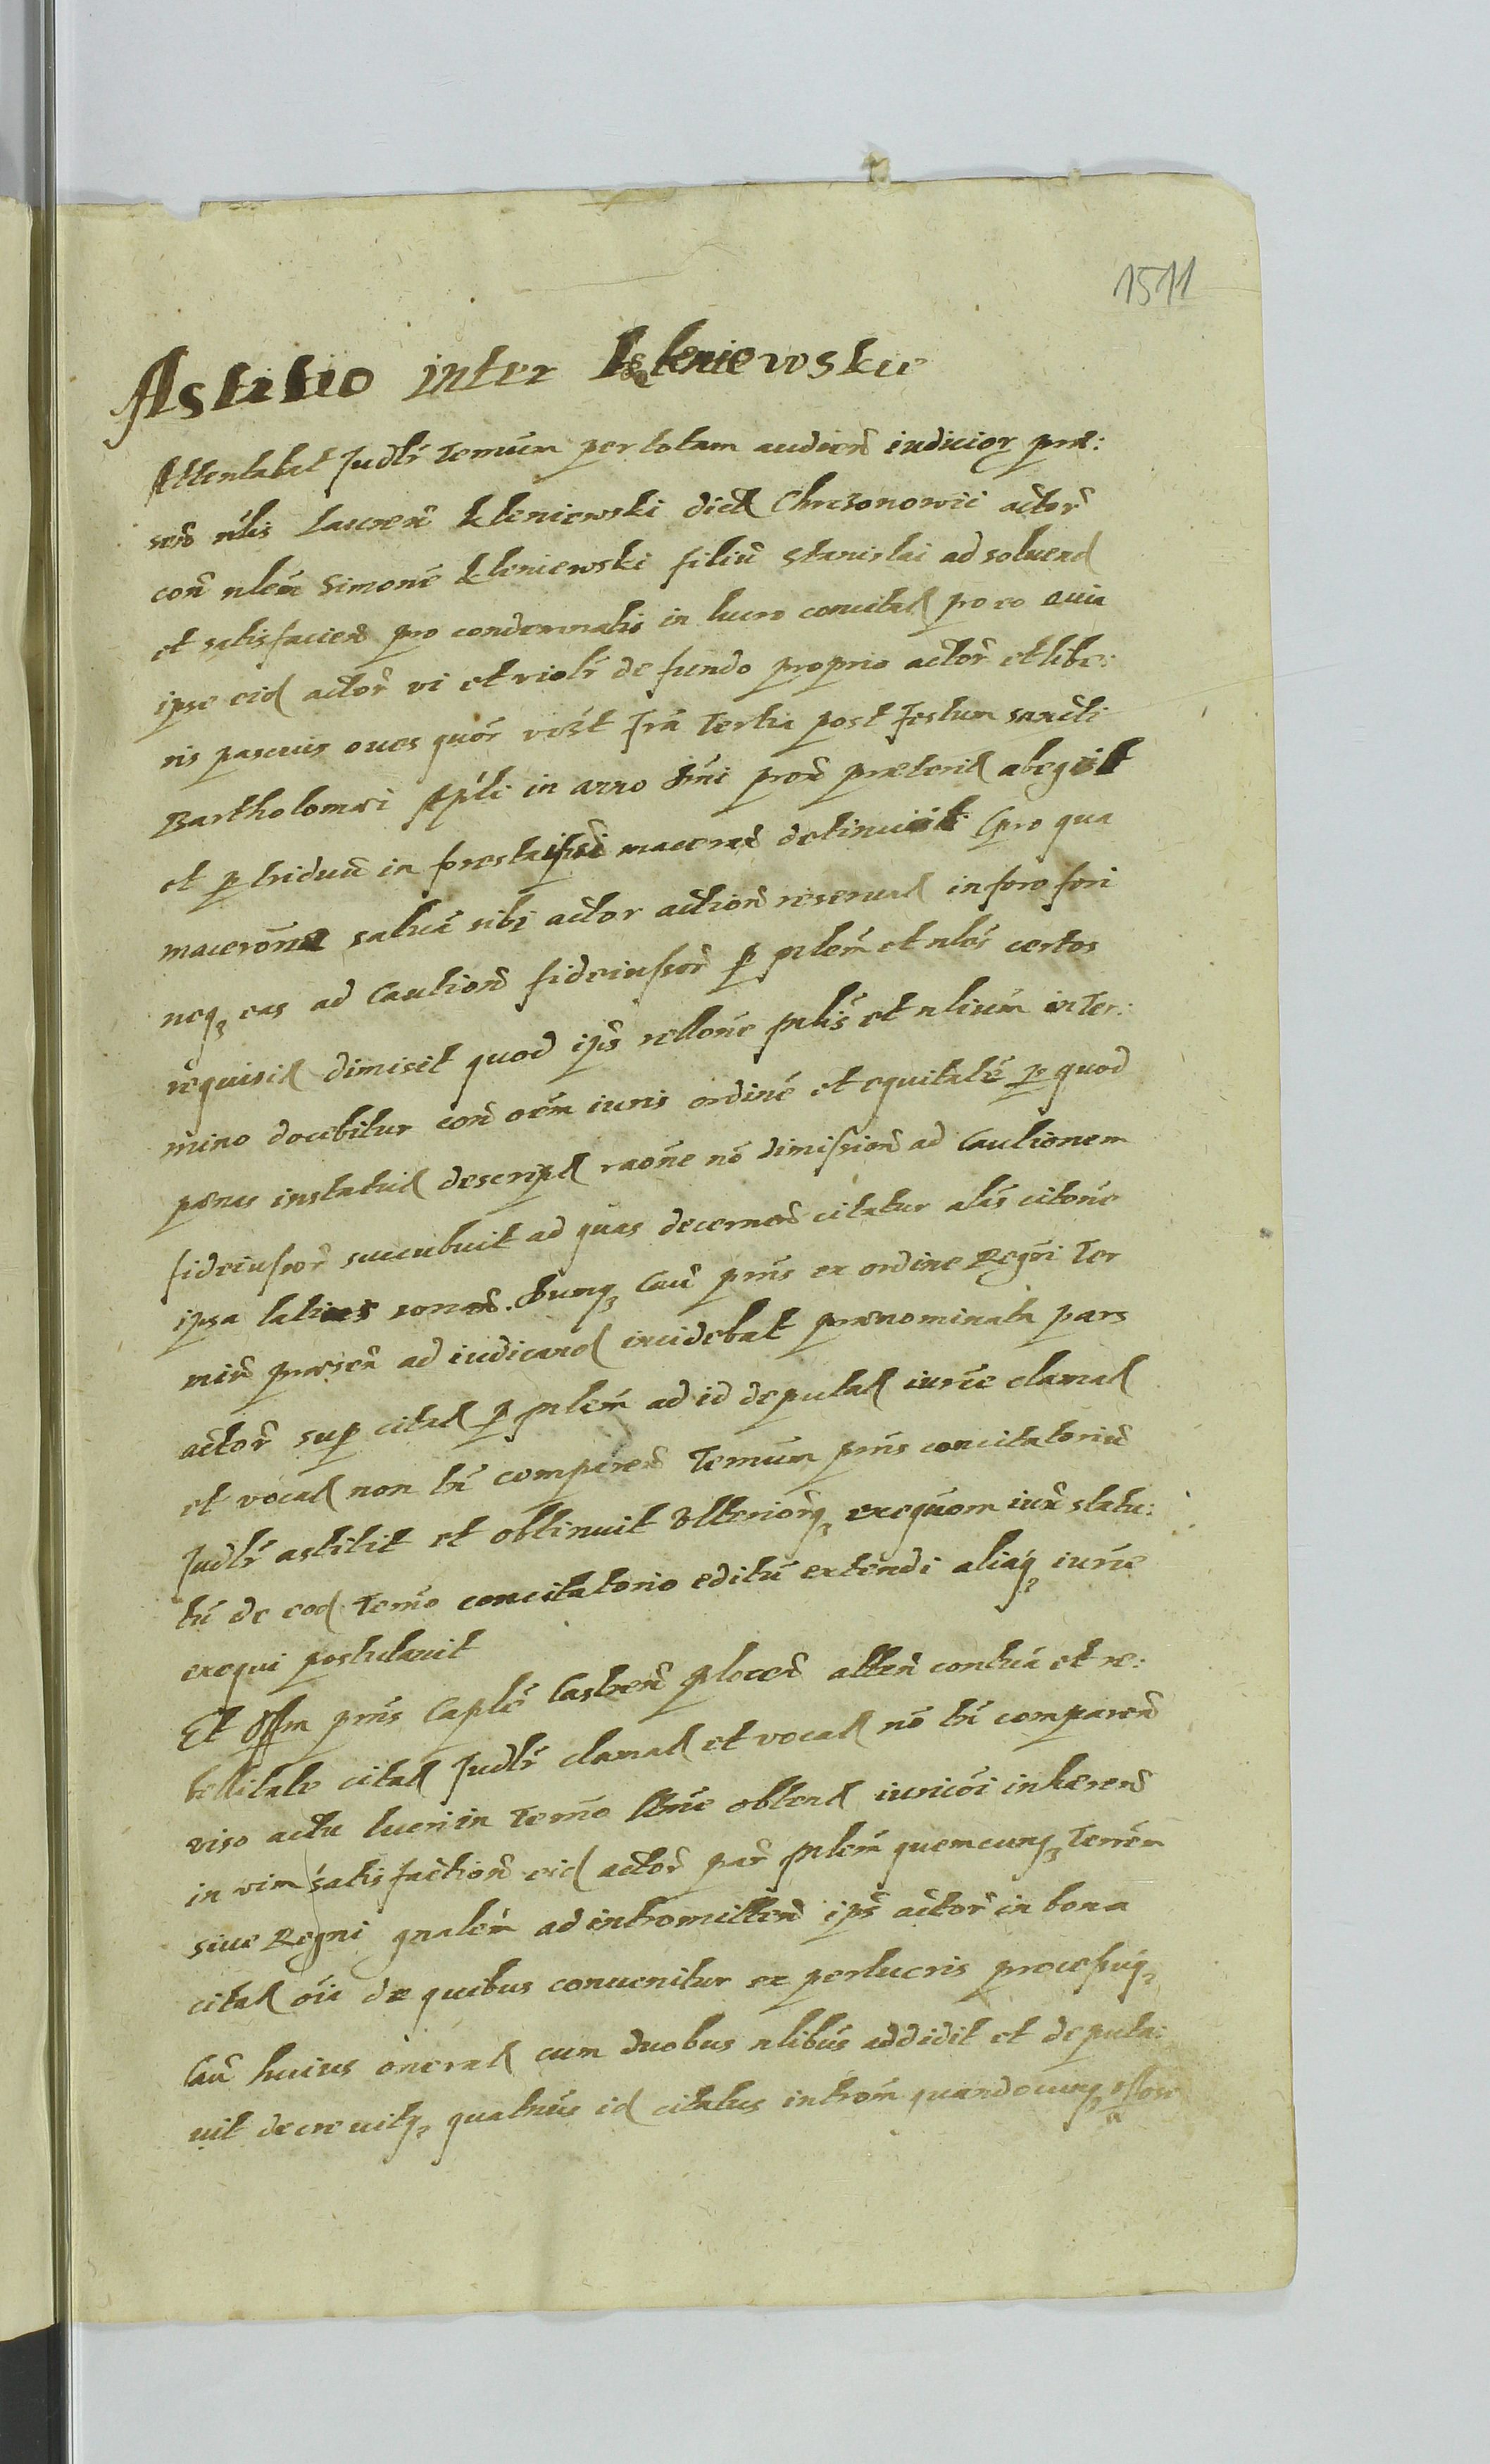 1511
Astitio inter Kleniewskie
Attentabat Judlr Temum per totam audien iudicior præ:
sen nlis Lauren Kleniewski dict Chrzonowic actor
con nlem Simone Kleniewski filiu Stanislai ad soluend
et satisfacien pro condemnatis in lucro concitat pro eo quia
ipse eid actor vi et violr de fundo proprio actor et libe:
ris pascuis oues quor vist fra Tertia post Festum sancti
Bartholomæi Apli in anno dni pron præterit abegit
et p triduu in maceran detinuit pro qua
macerone salua sibi actor action reseruat in foro fori
neqz eas ad Caution fideiussor p mlem et nles certos
requisit dimisit quod ips rellone mlis et nlium in Ter:
mino docebitur con oem iuris ordine et equitate p quod
pœnas instatut descript raone no dimission ad Cautionem
fideiussor succubuit ad quas decernen citatur alas citone
ipsa latius sonan. Dumqz Cau pns ex ordine Regri Ter
min præsen ad iudicand incidebat prænominata pars
actor sup citat p mlem ad id deputat iurie clamat
et vocat non tn comparen Temum pns concitatoriu
Judlr astitit et obtinuit Vlteriorqz exequom iur statu:
tu de eod Temo concitatorio editu extendi aliaqz iurie
exequi postulauit
Et Offm pns Caplē Castren plocen atten contua et re:
bellitate citat Judlr clamat et vocat no tn comparen
viso actu lucri in Temo bne obtent iuricoi inhæren
in vim satisfaction eid actor par mlem quemcunqz Terrem
siue Regni gnalem ad intromitten ips actor in bona
citat oia de quibus conuenitur ex perlucris processuqz
Cau huius onerat cum duobus nlibus addidit et deputa:
uit decreuitqz quatnus id citatus introm quandocunqz